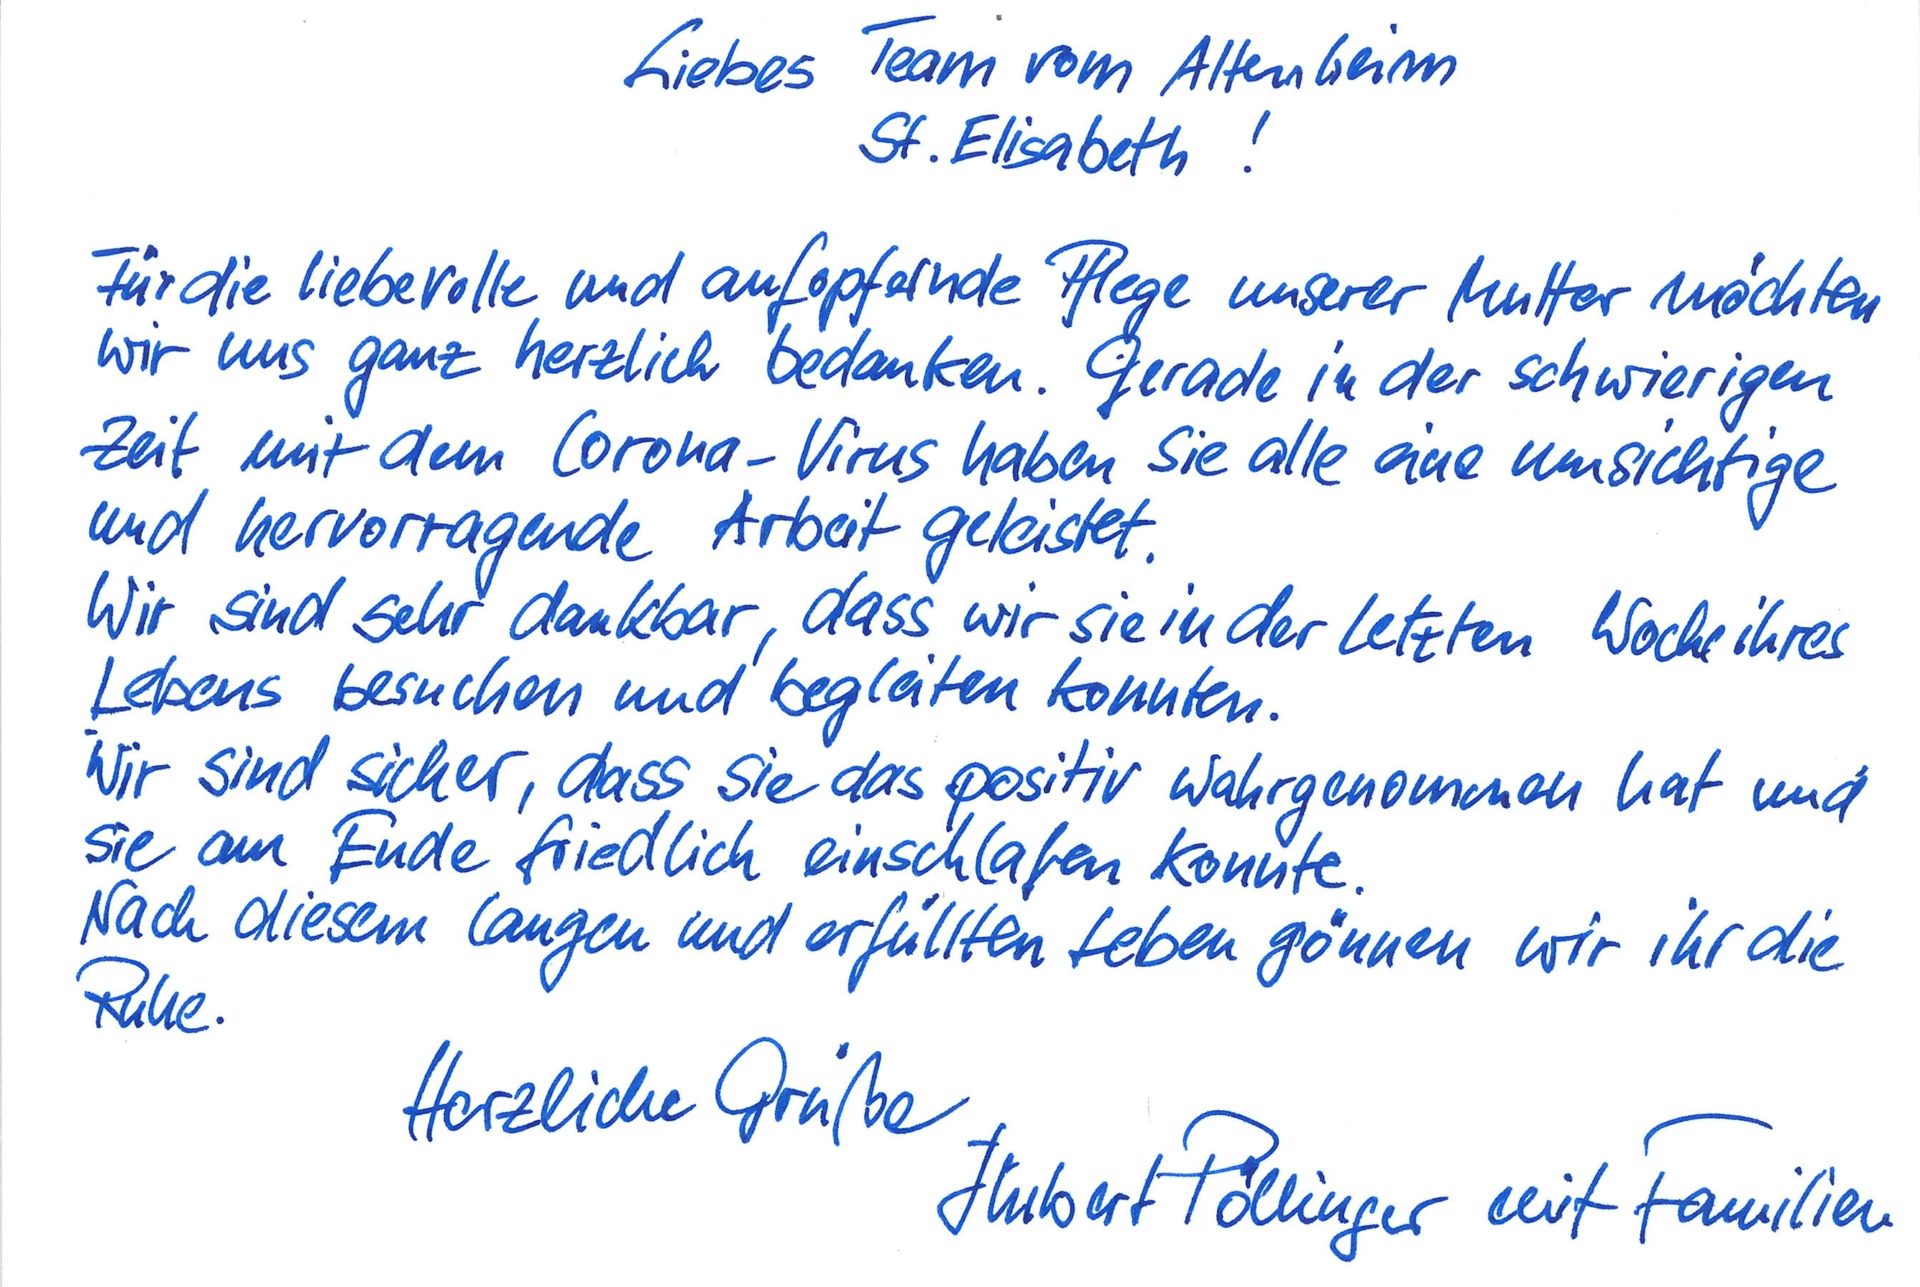 Liebes Team vom Altenheim
St. Elisabeth !
Für die liebevolle und aufopfernde Pflege unserer Mutter möchten
wir uns ganz herzlich bedanken. Gerade in der schwierigen
Zeit mit dem Corona-Virus haben Sie alle eine umsichtige
und hervorragende Arbeit geleistet.
Wir sind sehr dankbar, dass wir sie in der letzten Woche ihres
Lebens besuchen und begleiten konnten.
Wir sind sicher, dass sie das positiv wahrgenommen hat und
sie am Ende friedlich einschlafen konnte.
Nach diesem langen und erfüllten Leben gönnen wir ihr die
Ruhe.
Herzliche Grüße
Hubert Pöllinger mit Familien